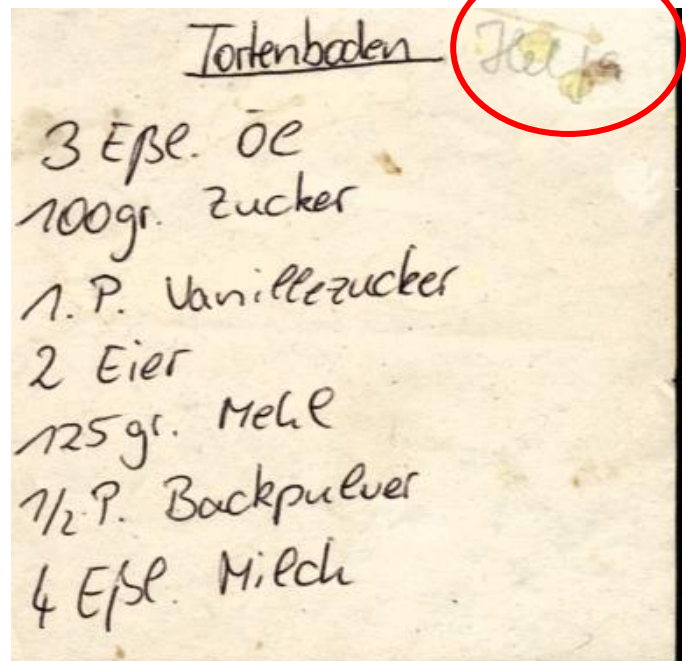 Tortenboden
3 Eßl. Öl
100gr. Zucker
1. P. Vanillezucker
2 Eier
125gr. Mehl
1/2 P. Backpulver
4 Eßl. Milch